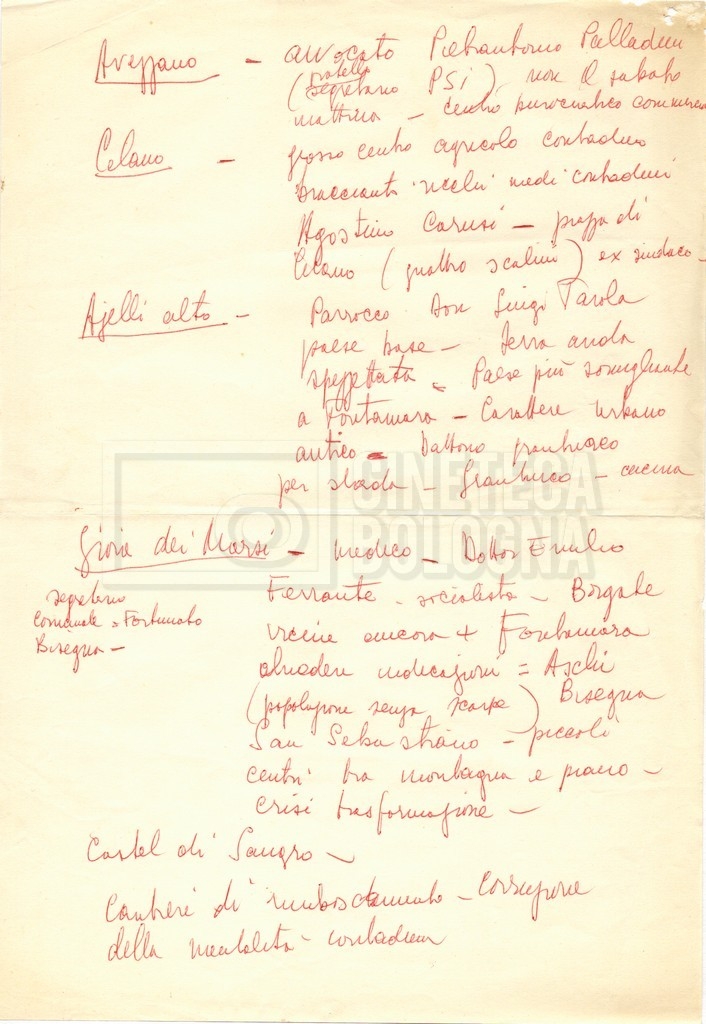 Avezzano - avvocato Pietrantonio Palladini
(fratello
segretario PSI) non il sabato
mattina - centro burocratico commerci
Celano - grosso centro agricolo contadino
braccianti ricchi medi contadini
Agostino Carusi - piazza di
Celano (quattro scalini) ex sindaco -
Ajelli alto - Parrocco Don Luigi Tarola
paese base - terra arida
spezzettata = Paese più somigliante
a Fontamara - Carattere urbano
antico - Battono granturco
per strada - Granturco - cucina
CINETECA
BOLOGNA
Gioia dei Marsi - medico - Dottor Emilio
Ferrante - socialista - Borgate
segretario
comunale = Fortunato
Bisegna -
vicine ancora + Fontamara
chiedere indicazioni = Aschi
(popolazione senza scarpe) Bisegna
San Sebastiano - piccoli
centri tra montagna e piano -
crisi trasformazione -
Castel di Sangro -
Cantieri di rimboschimento - Corruzione
della mentalità contadina